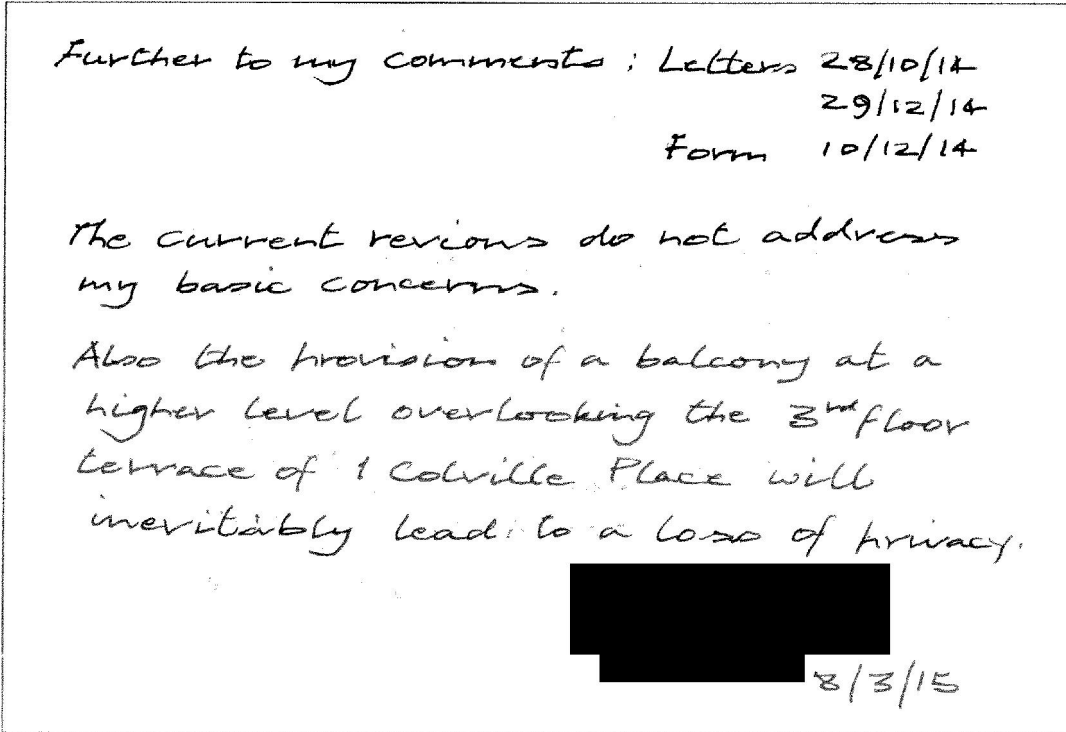 Further to my comments : Letters 28/10/14
29/12/14
Form 10/12/14
The current revions do not address
my basic concerns.
Also the provision of a balcony at a
higher level overlooking the 3rd floor
terrace of 1 Colville Place will
inevitably lead to a loss of privacy.
8/3/15